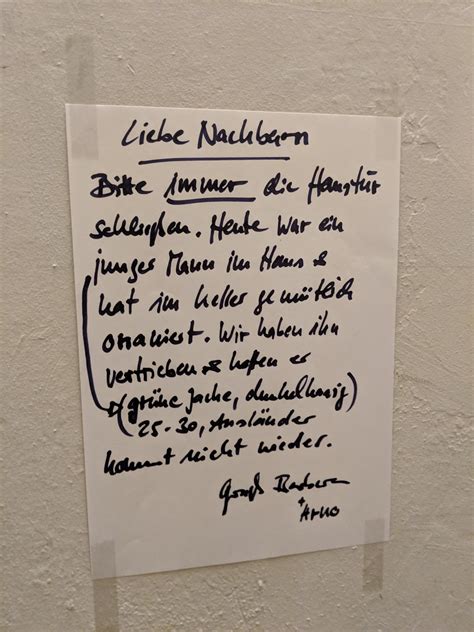 Liebe Nachbarn
Bitte immer die Haustür
schließen. Heute war ein
junger Mann im Haus &
hat im Keller gemütlich
onaniert. Wir haben ihn
vertrieben & hoffen er
(grüne Jacke, dunkelhaarig)
(25-30, Ausländer
kommt nicht wieder.
Gruß Barbara
+ Arno